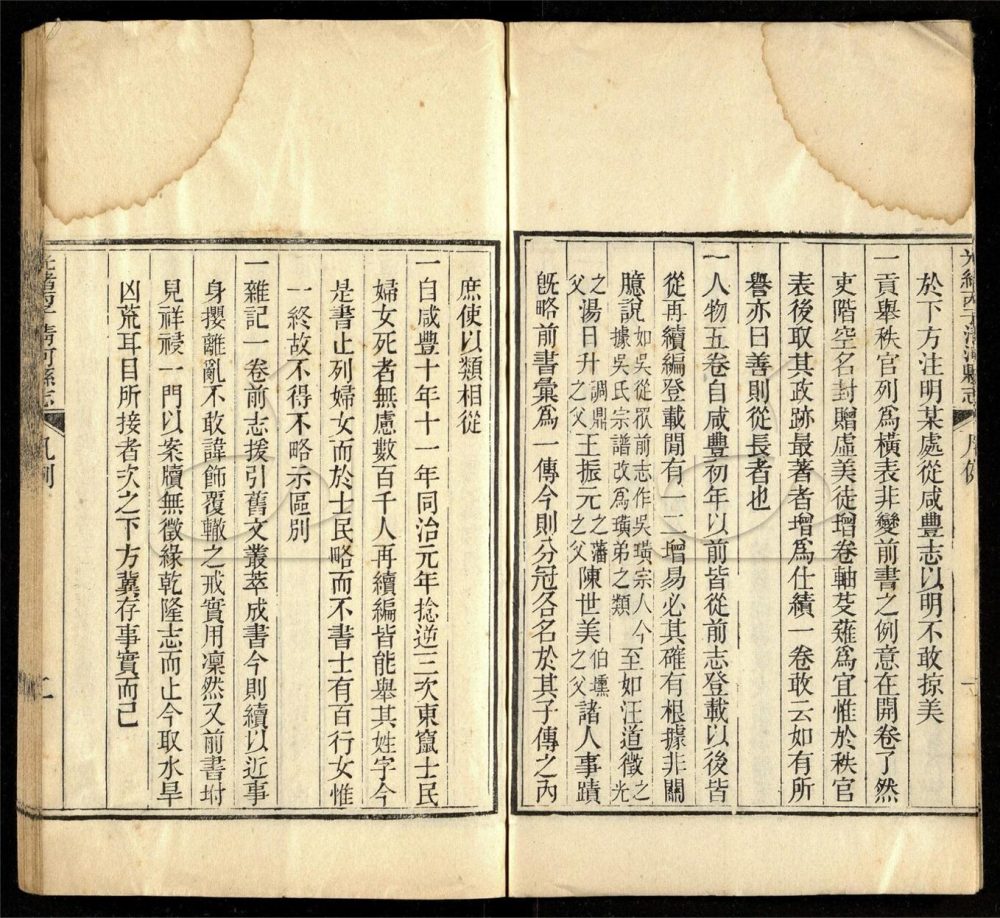 光緒丙子清河縣志
凡例
一
於下方注明某處從咸豐志以明不敢掠美
一貢舉秩官列爲橫表非變前書之例意在開卷了然
吏階空名封贈虛美徒增卷軸芟薙爲宜惟於秩官
表後取其政跡最著者增爲仕績一卷敢云如有所
譽亦曰善則從長者也
一人物五卷自咸豐初年以前皆從前志登載以後皆
從再續編登載閒有一二增易必其確有根據非關
臆說如吳從欲前志作吳璜宗人今據吳氏宗譜改爲璜弟之類至如汪道徵之光之父湯日升調鼎之父王振元之藩之父陳世美伯壎之父諸人事蹟
旣略前書彙爲一傳今則分冠各名於其子傳之內
庶使以類相從
一自咸豐十年十一年同治元年捻逆三次東竄士民
婦女死者無慮數百千人再續編皆能舉其姓字今
是書止列婦女而於士民略而不書士有百行女惟
一終故不得不略示區別
一雜記一卷前志援引舊文叢萃成書今則續以近事
身攖離亂不敢諱飾覆轍之戒實用凜然又前書坿
見祥祲一門以案牘無徵緣乾隆志而止今取水旱
凶荒耳目所接者次之下方冀存事實而已
光緒丙子清河縣志
凡例
二